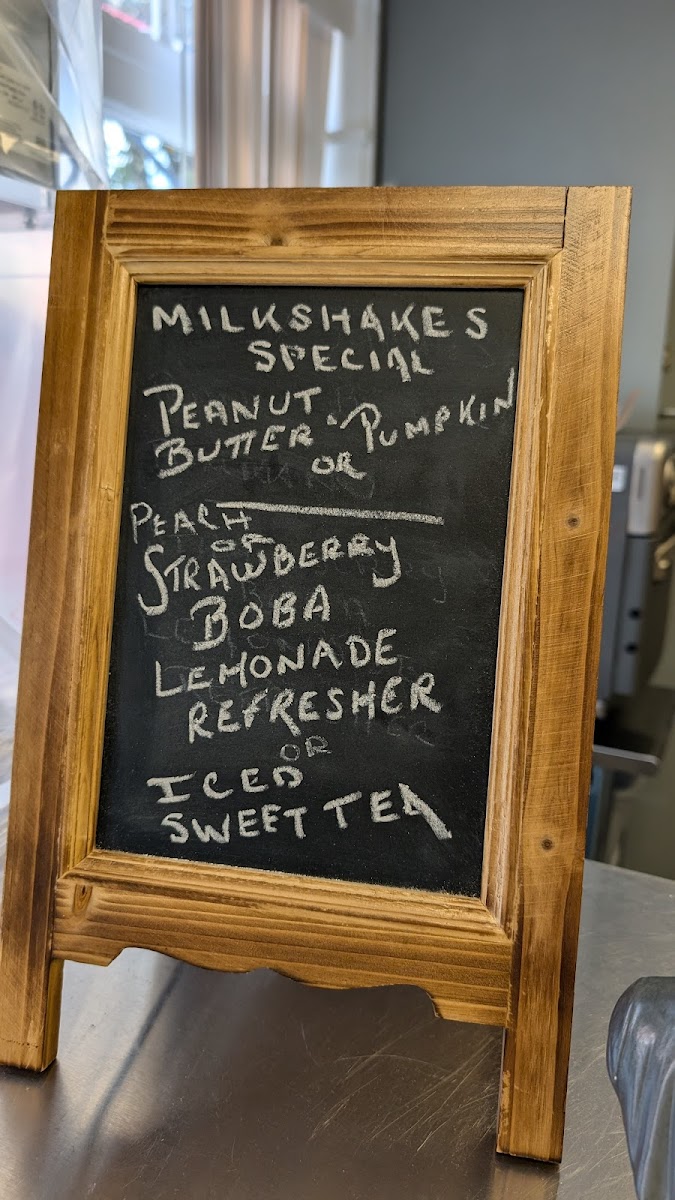 MILKSHAKES
SPECIAL
PEANUT
BUTTER • PUMPKIN
OR
PEACH
OR
STRAWBERRY
BOBA
LEMONADE
REFRESHER
OR
ICED
SWEET TEA